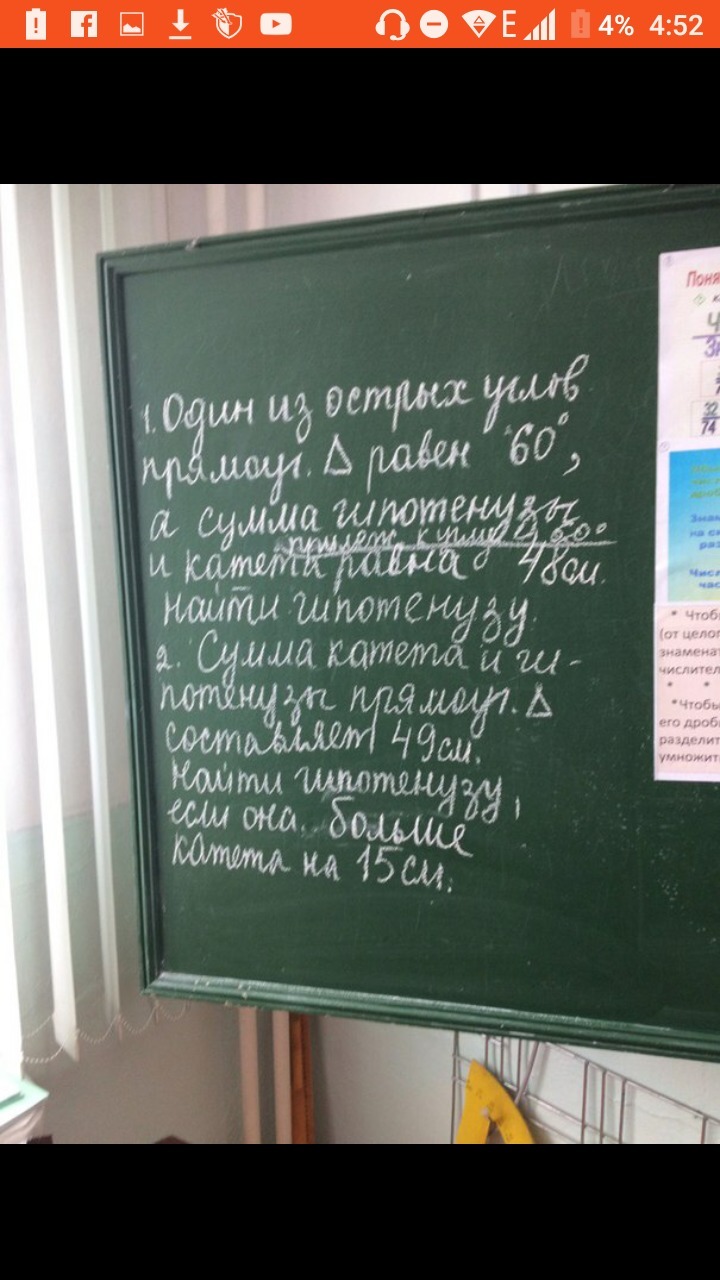 4% 4:52
1. Один из острых углов
прямоуг. Δ равен 60°,
а сумма гипотенузы
прилеж. к углу 60°
и катета равна 48см.
Найти гипотенузу.
2. Сумма катета и ги-
потенузы прямоуг. Δ
составляет 49см.
Найти гипотенузу,
если она больше
катета на 15см.
Поня
32
74
* Чтобы
(от целог
знаменат
числител
* *
*Чтобы
его дроби
разделит
умножит